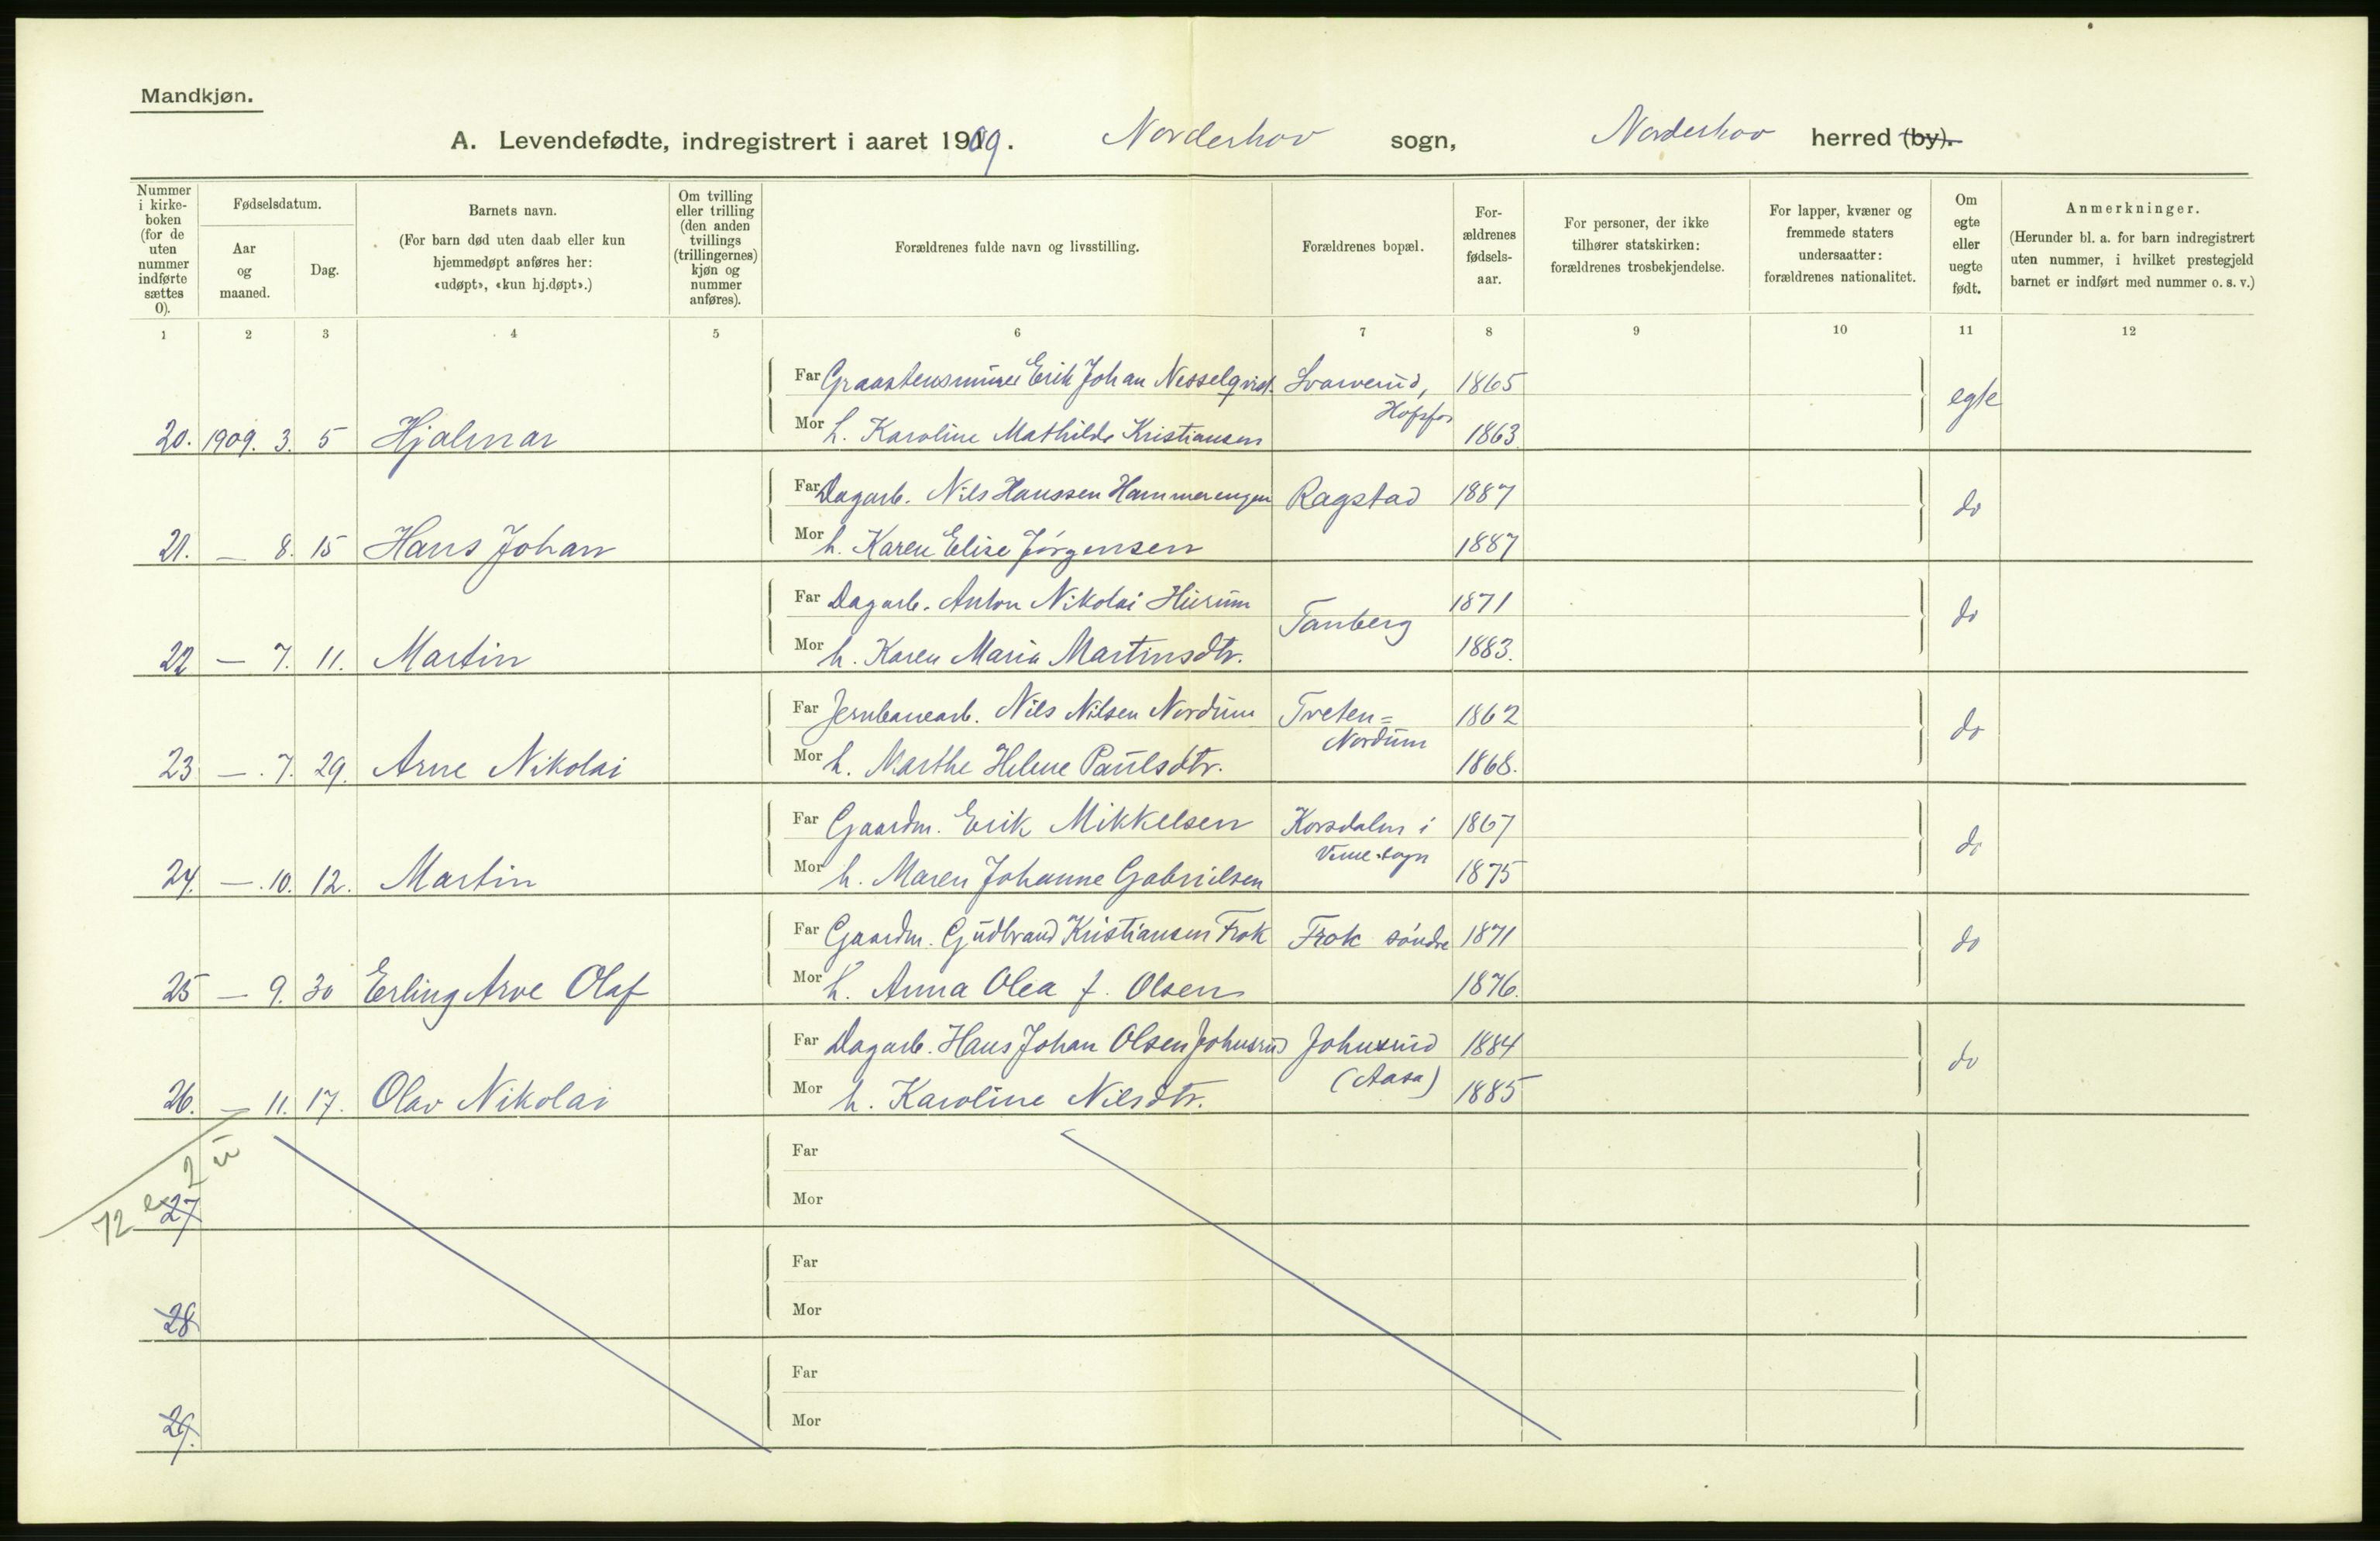 Mandkjøn.
A. Levendefødte, indregistrert i aaret 1909. Norderhov sogn, Norderhov herred (by).
Nummer i kirkeboken (for de uten nummer indførte sættes 0).
Fødselsdatum.
Aar og maaned.
Dag.
Barnets navn.
(For barn død uten daab eller kun hjemmedøpt anføres her: «udøpt», «kun hj.døpt».)
Om tvilling eller trilling (den anden tvillings (trillingernes) kjøn og nummer anføres).
Forældrenes fulde navn og livsstilling.
Forældrenes bopæl.
Forældrenes fødselsaar.
For personer, der ikke tilhører statskirken: forældrenes trosbekjendelse.
For lapper, kvæner og fremmede staters undersaatter: forældrenes nationalitet.
Om egte eller uegte født.
Anmerkninger.
(Herunder bl. a. for barn indregistrert uten nummer, i hvilket prestegjeld barnet er indført med nummer o. s. v.)
1 2 3 4 5 6 7 8 9 10 11 12
Far Graastensmurer Erik Johan Nesselqvist 1865 egte
Hofsfos
20. 1909. 3. 5 Hjalmar Mor h. Karoline Mathilde Kristiansen 1863.
Far Dagarb. Nils Hanssen Hammerengen Ragstad 1887 do
21. — 8. 15 Hans Johan Mor h. Karen Elise Jørgensen 1887
Far Dagarb. Anton Nikolai Hurum Tanberg 1871 do
22 — 7. 11. Martin Mor h. Karen Maria Martinsdtr. 1883.
Far Jernbanearb. Nils Nilsen Nordum Tveten= 1862 do
Nordum
23 — . 7. 29. Arne Nikolai Mor h. Marthe Helene Paulsdtr. 1868.
Far Gaardm. Erik Mikkelsen Korsdalen i 1867 do
Vime sogn
24. — . 10. 12. Martin Mor h. Maren Johanne Gabrielsen 1875
Far Gaardm. Gudbrand Kristiansen Frok Frok søndre 1871 do
25 — 9. 30 Erling Arve Olaf Mor h. Anna Olea f. Olsen 1876.
Far Dagarb. Hans Johan Olsen Johnsrud Johnsrud 1884 do
(Aasa)
26. — 11. 17. Olav Nikolai Mor h. Karoline Nilsdtr. 1885
2 u
Far
72 e
27 Mor
Far
28 Mor
Far
29. Mor